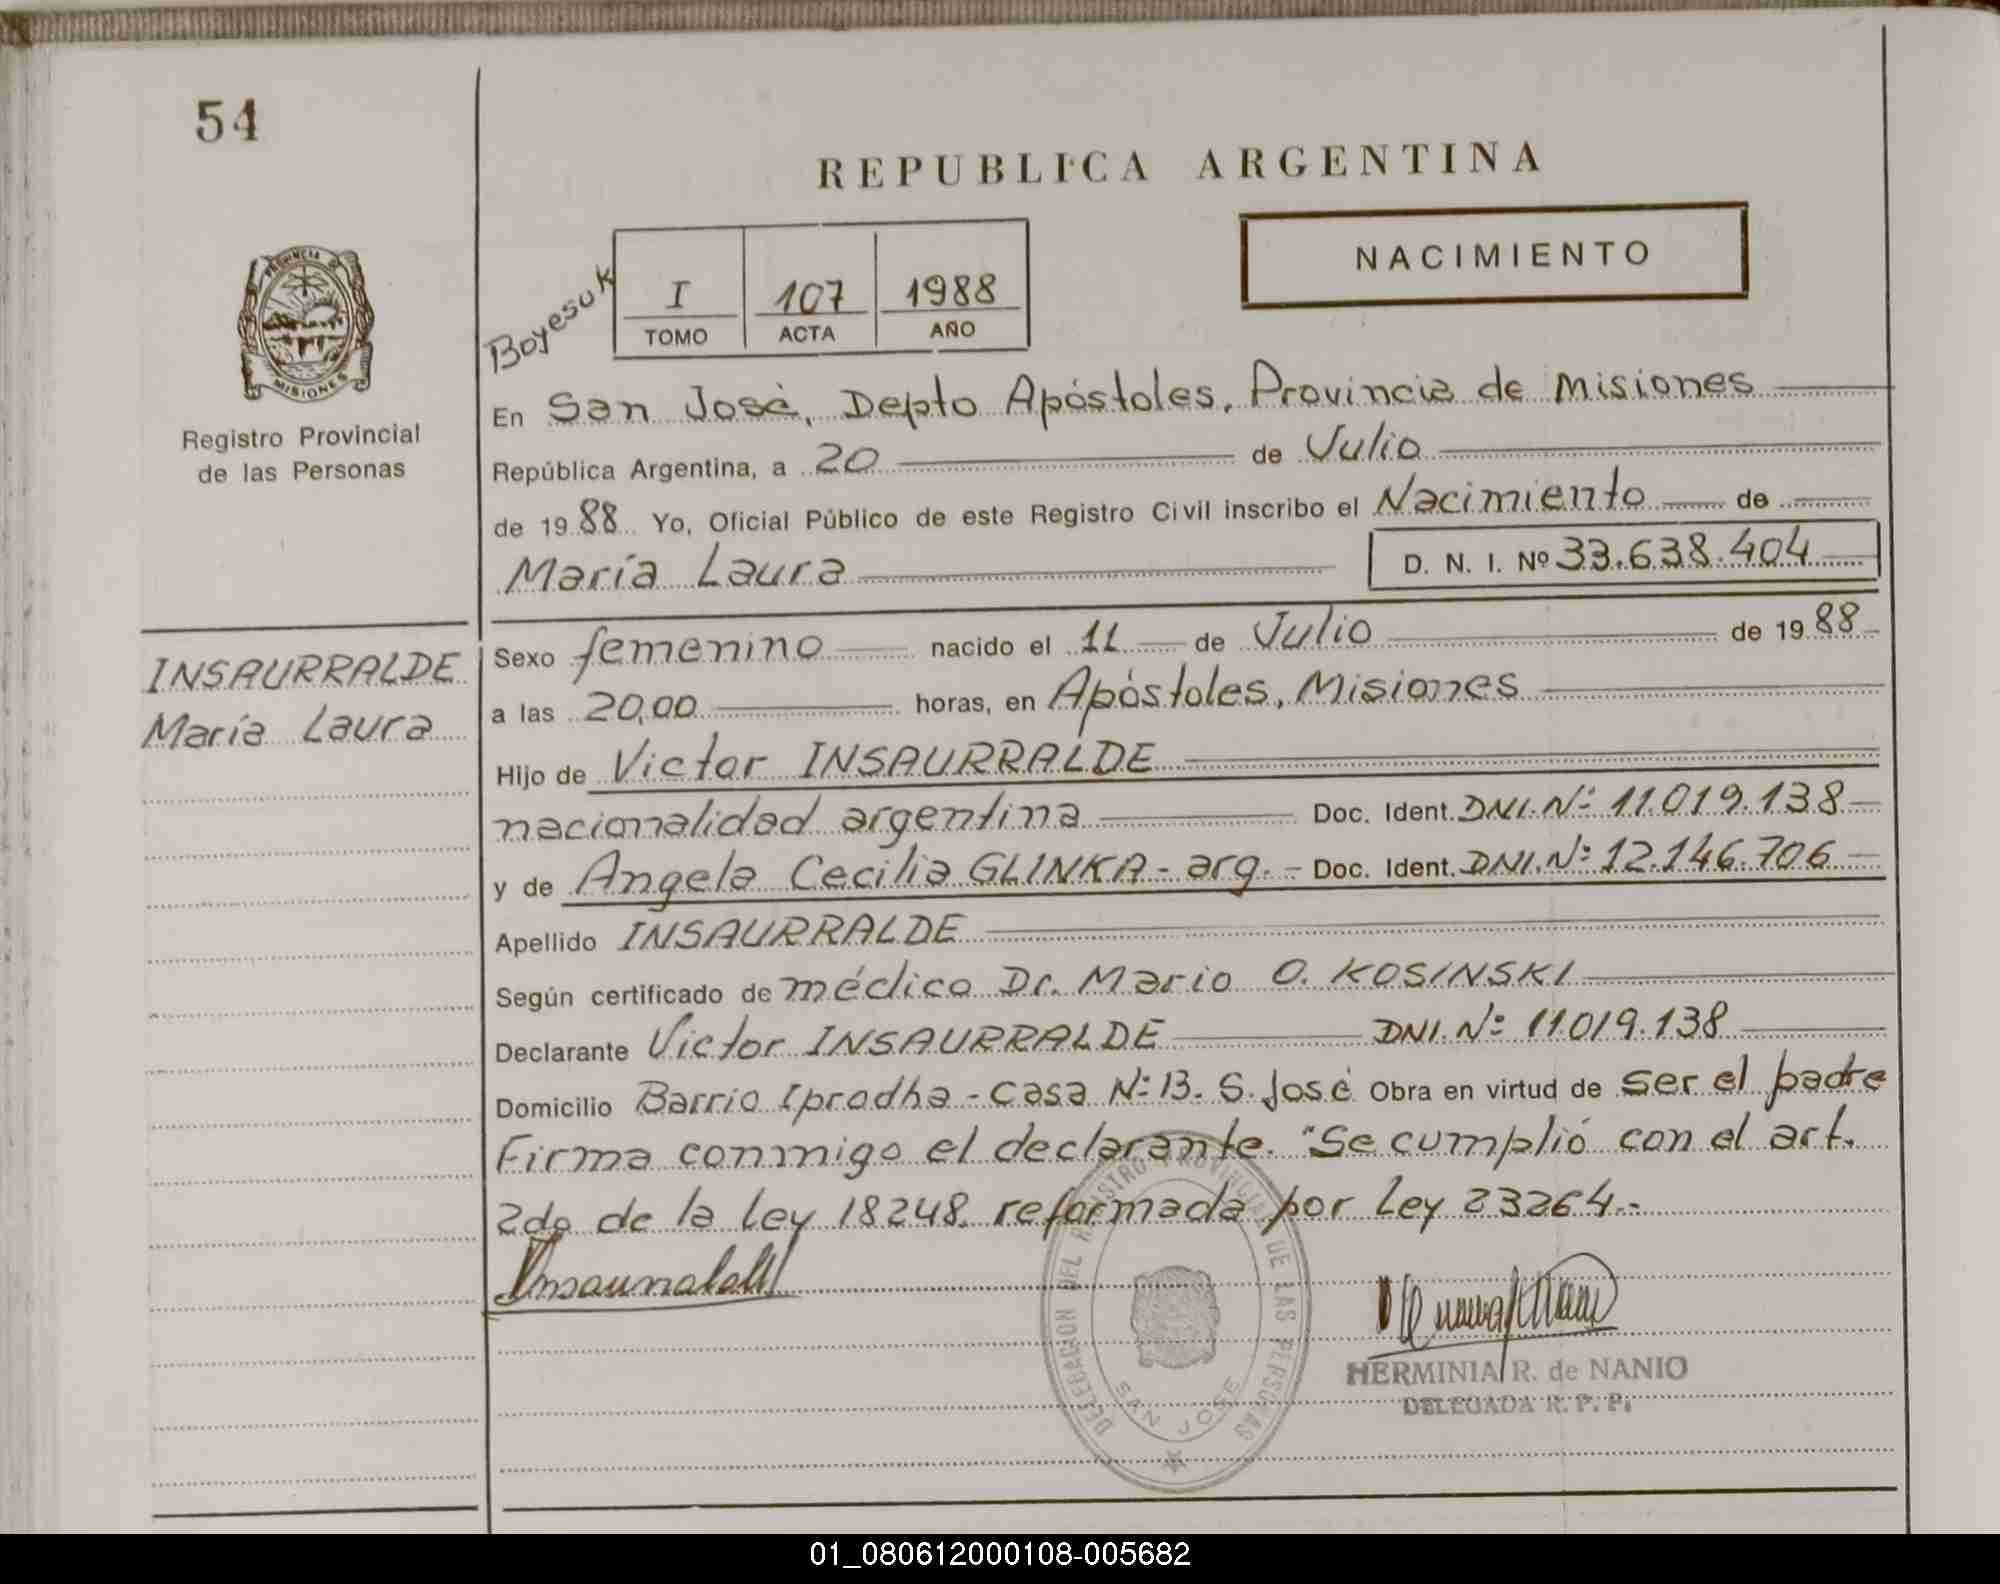 54
REPUBLICA ARGENTINA
NACIMIENTO
PROVINCIA D
MISIONES
Registro Provincial
de las Personas
Boyesuk
I 107 1988
TOMO ACTA AÑO
En San José, Depto Apóstoles, Provincia de Misiones
República Argentina, a 20 de Julio
de 1988 Yo, Oficial Público de este Registro Civil inscribo el Nacimiento de
María Laura D. N. I. Nº 33.638.404
INSAURRALDE
María Laura
Sexo femenino nacido el 11 de Julio de 1988
a las 20,00 horas, en Apóstoles, Misiones
Hijo de Victor INSAURRALDE
nacionalidad argentina Doc. Ident. DNI. Nº 11.019.138
y de Angela Cecilia GLINKA - arg. - Doc. Ident. DNI. Nº 12.146.706
Apellido INSAURRALDE
Según certificado de médico Dr. Mario O. KOSINSKI
Declarante Victor INSAURRALDE DNI. Nº 11.019.138
Domicilio Barrio Iprodha - Casa Nº 13. S. José Obra en virtud de ser el padre
Firma conmigo el declarante. "Se cumplió con el art.
2do de la ley 18248. reformada por Ley 23264.-
DELEGACION DEL REGISTRO PROVINCIAL DE LAS PERSONAS
SAN JOSE
HERMINIA R. de NANIO
DELEGADA R. P. P.
01_080612000108-005682